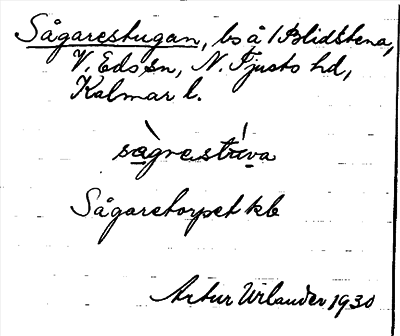 Sågarestugan, bs å 1 Blidstena,
V. Eds sn, N. Tjusts hd,
Kalmar l.
sågrestrva
Sågaretorpet kb
Artur Urlander 1930